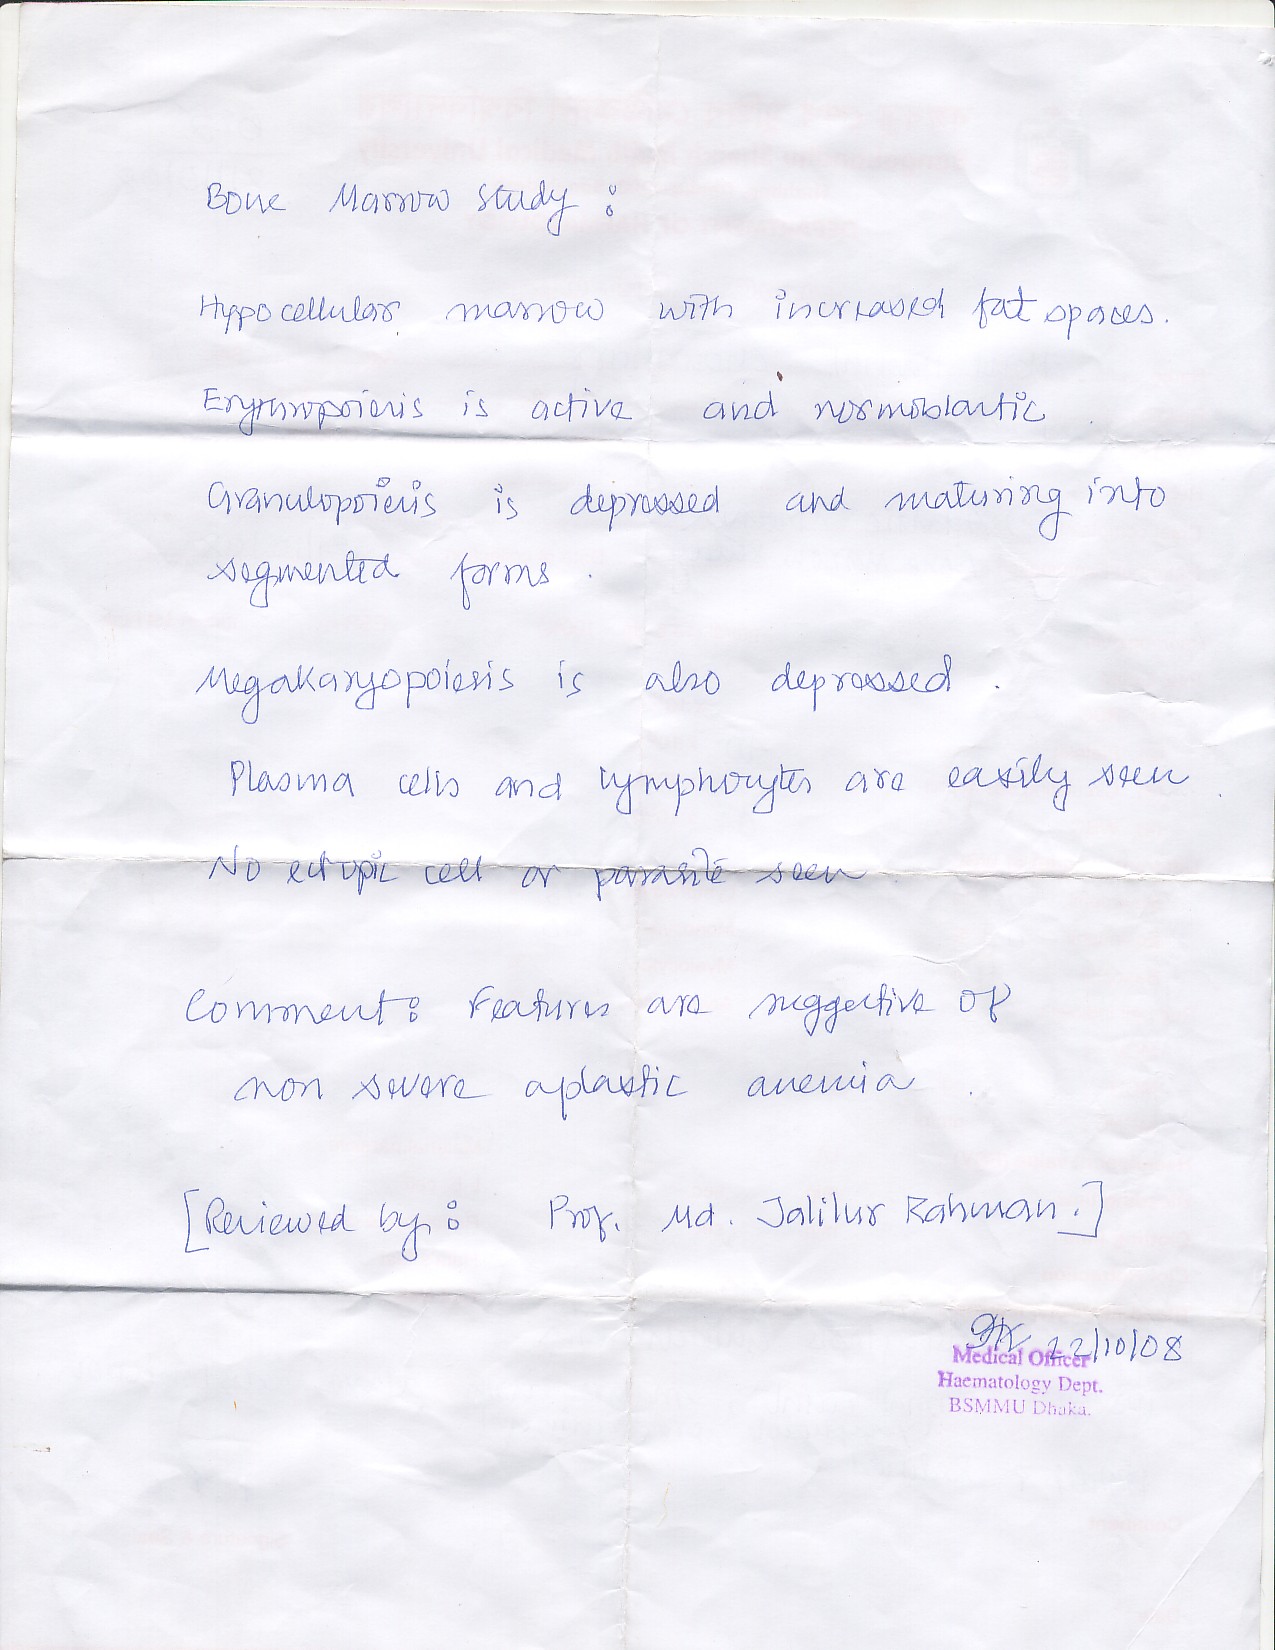 Bone Marrow study :
Hypocellular marrow with increased fat spaces.
Erythropoiesis is active and normoblastic
Granulopoiesis is depressed and maturing into
segmented forms .
Megakaryopoiesis is also depressed .
Plasma cells and lymphocytes are easily seen .
No ectopic cell or parasite seen .
Comment : Features are suggestive of
non severe aplastic anemia .
[Reviewed by : Prof. Md. Jalilur Rahman.]
22/10/08
Medical Officer
Haematology Dept.
BSMMU Dhaka.